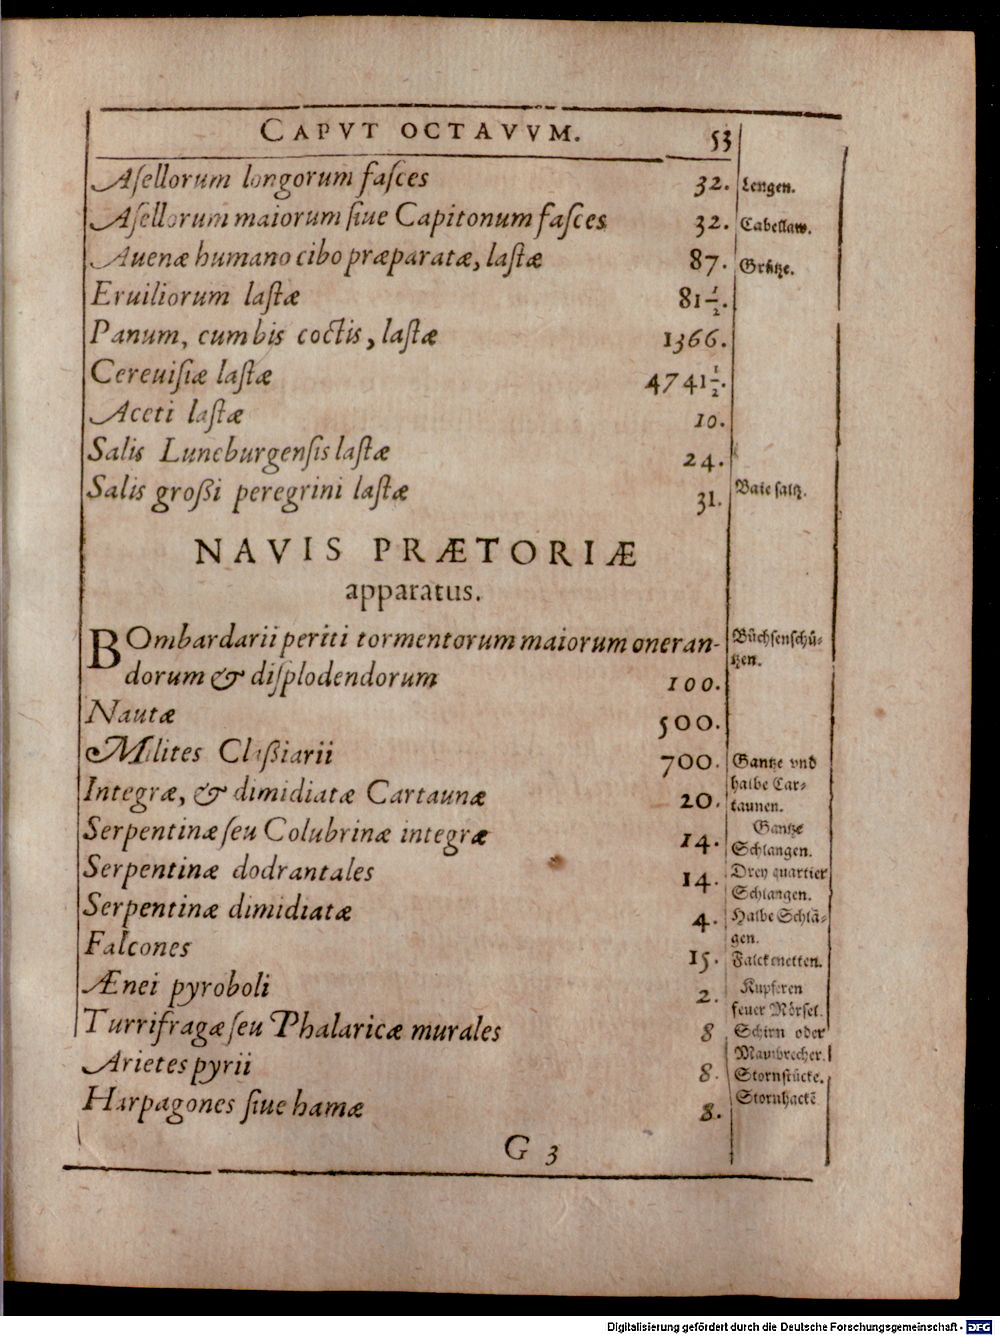 CAPVT OCTAVVM. 53
Aſellorum longorum faſces 32. Lengen.
Aſellorum maiorum ſiue Capitonum faſces 32. Cabellaw.
Auenæ humano cibo præparatæ, laſtæ 87. Grůtze.
Eruiliorum laſtæ 81 1/2.
Panum, cum bis coctis, laſtæ 1366.
Cereuiſiæ laſtæ 4741 1/2.
Aceti laſtæ 10.
Salis Luneburgenſis laſtæ 24.
Salis groſſi peregrini laſtæ 31. Baie ſaltz.
NAVIS PRÆTORIÆ
apparatus.
BOmbardarii periti tormentorum maiorum oneran- Bůchſenſchů-
dorum & diſplodendorum 100. tzen.
Nautæ 500.
Milites Claßiarii 700.
Integræ, & dimidiatæ Cartaunæ 20. Gantze vnd
halbe Car-
taunen.
Serpentinæ ſeu Colubrinæ integræ 14. Gantze
Schlangen.
Serpentinæ dodrantales 14. Drey quartier
Schlangen.
Serpentinæ dimidiatæ 4. Halbe Schlã-
gen.
Falcones 15. Falckenetten.
Ænei pyroboli 2. Kupferen
feuer Mörſel.
Turrifragæ ſeu Phalaricæ murales 8 Schirn oder
Maurbrecher.
Arietes pyrii 8. Stornſtücke.
Harpagones ſiue hamæ 8. Stornhackẽ
G 3
Digitalisierung gefördert durch die Deutsche Forschungsgemeinschaft - DFG